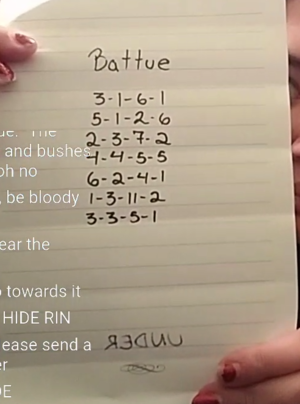 Battue
3-1-6-1
5-1-2-6
2-3-7-2
4-4-5-5
6-2-4-1
1-3-11-2
3-3-5-1
UNDER
The
and bushes
oh no
, be bloody
ear the
towards it
HIDE RIN
ease send a
er
DE